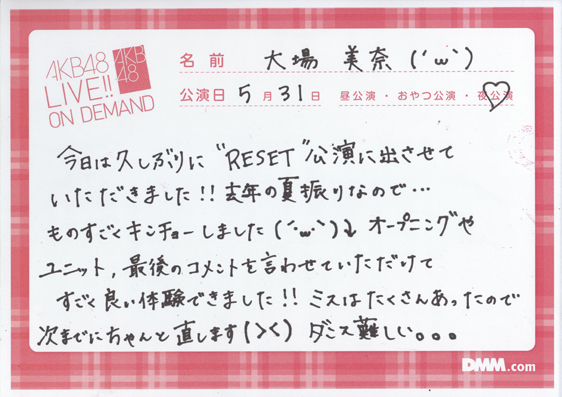 AKB48
LIVE!!
ON DEMAND
AKB
48
名前 大場 美奈 (´ω`)
公演日 5月31日 昼公演・おやつ公演・夜公演
今日は久しぶりに"RESET"公演に出させて
いただきました!!去年の夏振りなので…
ものすごくキンチョーしました(´･ω･`)↓ オープニングや
ユニット,最後のコメントを言わせていただけて
すごく良い体験できました!! ミスはたくさんあったので
次までにちゃんと直します(><) ダンス難しい。。。
DMM.com